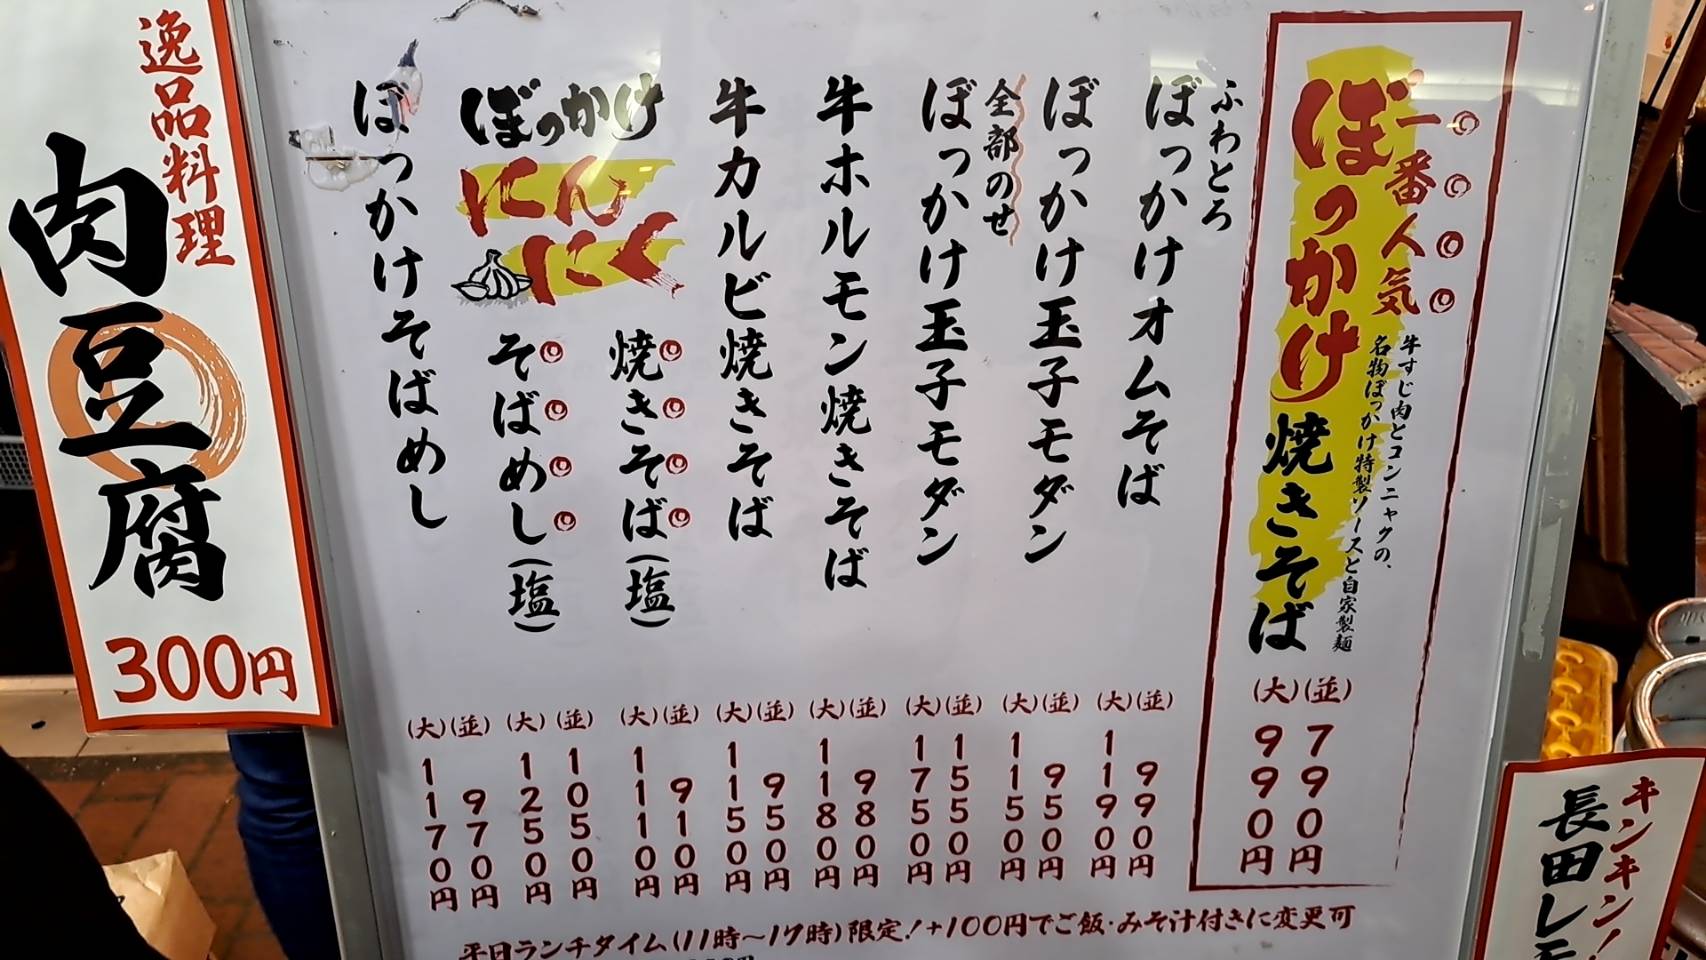 一番人気
ぼっかけ焼きそば
牛すじ肉とコンニャクの、
名物ぼっかけ特製ソースと自家製麺
(並)790円
(大)990円
ふわとろ
ぼっかけオムそば
(並)990円
(大)1190円
ぼっかけ玉子モダン
(並)950円
(大)1150円
全部のせ
ぼっかけ玉子モダン
(並)1550円
(大)1750円
牛ホルモン焼きそば
(並)980円
(大)1180円
牛カルビ焼きそば
(並)950円
(大)1150円
ぼっかけ
にんにく
焼きそば(塩)
(並)910円
(大)1110円
そばめし(塩)
(並)1050円
(大)1250円
ぼっかけそばめし
(並)970円
(大)1170円
平日ランチタイム(11時〜17時)限定!+100円でご飯・みそ汁付きに変更可
逸品料理
肉豆腐
300円
キンキン!
長田レモ